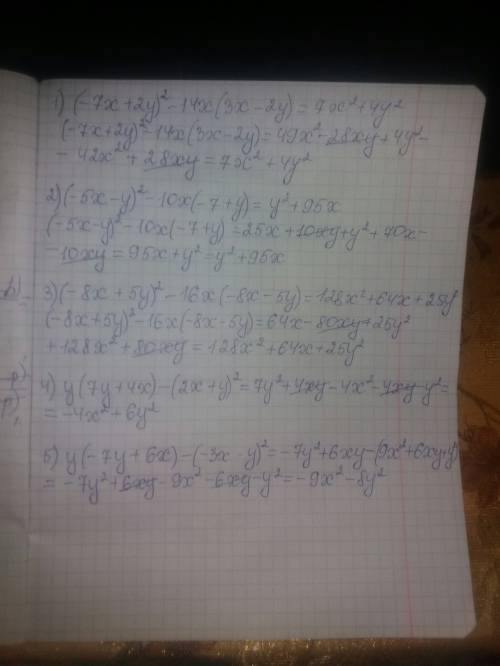 1) (-7x+2y)²-14x(3x-2y)=7x²+4y²
(-7x+2y)²-14x(3x-2y)=49x²-28xy+4y²-
-42x²+28xy=7x²+4y²
2)(-5x-y)²-10x(-7+y)=y²+95x
(-5x-y)²-10x(-7+y)=25x+10xy+y²+70x-
-10xy=95x+y²=y²+95x
3)(-8x+5y)²-16x(-8x-5y)=128x²+64x+25y²
(-8x+5y)²-16x(-8x-5y)=64x-80xy+25y²
+128x²+80xy=128x²+64x+25y²
4) y(7y+4x)-(2x+y)²=7y²+4xy-4x²-4xy-y²=
=-4x²+6y²
5) y(-7y+6x)-(-3x-y)²=-7y²+6xy-(9x²+6xy+y²)
=-7y²+6xy-9x²-6xy-y²=-9x²-8y²